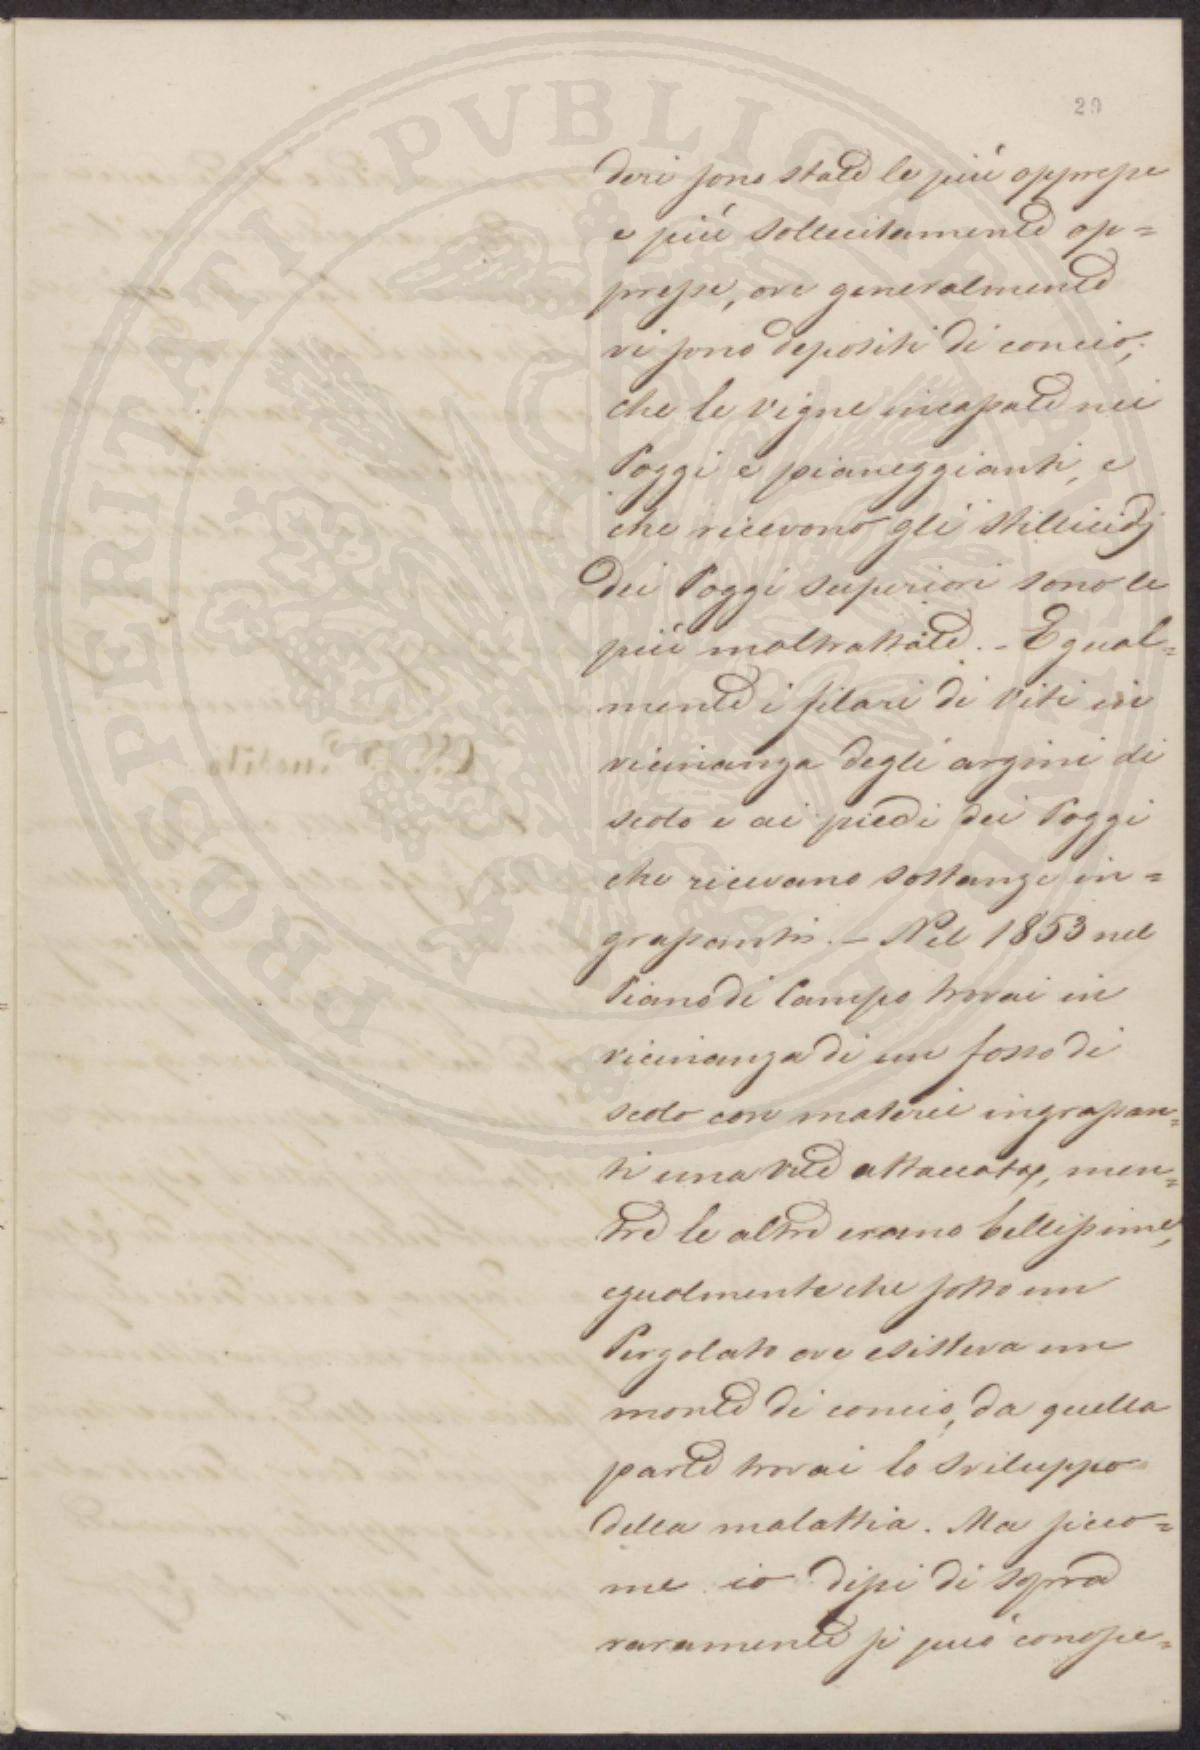 29
PROSPERITATI PVBLICAE AVGENDAE
deri sono state le più oppresse
e più sollecitamente op=
presse, ove generalmente
vi sono depositi di concio;
che le vigne incassate nei
Poggi e pianeggianti, e
che ricevono gli stillicidj
dei Poggi superiori sono le
più maltrattate. - Egual=
mente i filari di viti in
vicinanza degli argini di
scolo e ai piedi dei Poggi
che ricevano sostanze in=
grassanti. - Nel 1853 nel
Piano di Campo trovai in
vicinanza di un fosso di
scolo con materie ingrassan=
ti una vite attaccata, men=
tre le altre erano bellissime,
egualmente che sotto un
Pergolato ove esisteva un
monte di concio, da quella
parte trovai lo sviluppo
della malattia. Ma sicco=
me io dissi di sopra
raramente si può conosce=